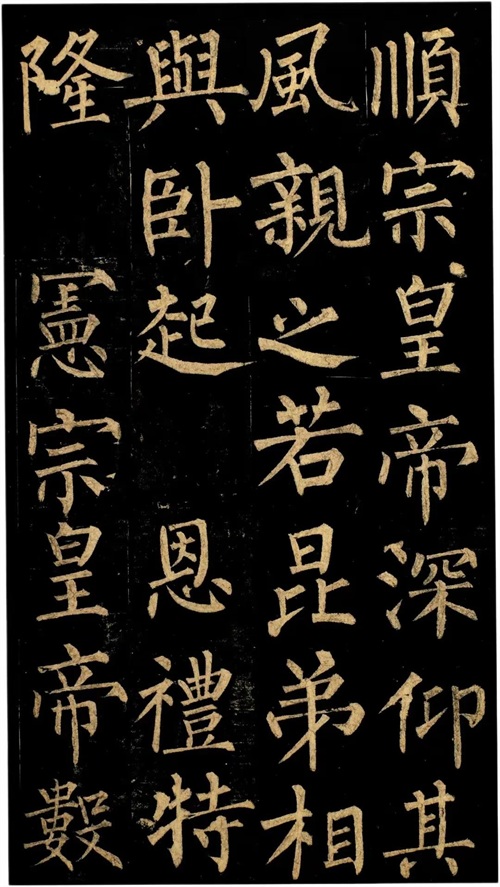 順宗皇帝深仰其
風親之若昆弟相
與卧起恩禮特
隆憲宗皇帝數